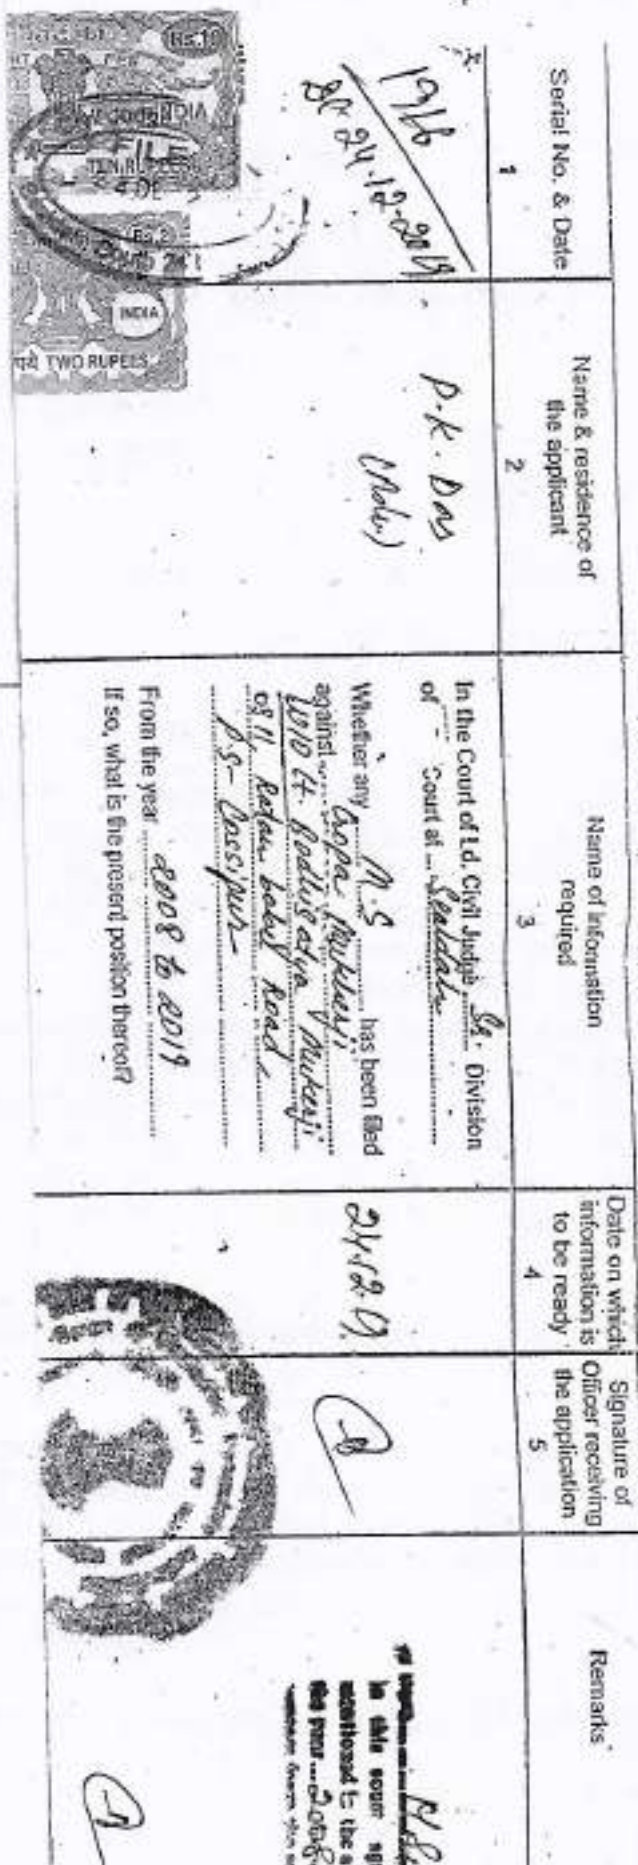 Serial No. & Date
1
Name & residence of
the applicant
2
Name of information
required
3
Date on which
information is
to be ready
4
Signature of
Officer receiving
the application
5
Remarks
1916
24.12.2019
P.K. Das
In the Court of Ld. Civil Judge Sr. Division
of Court at Sealdah
Whether any M.S has been filed
against Gopa Mukherji
of 11, Ratan babu Road
P.S- Cossipur
From the year 2008 to 2019
If so, what is the present position thereof?
24.12.19
in this court
mentioned in the
the year 2008
Rs.10
INDIA
TEN RUPEES
Rs.2
INDIA
TWO RUPEES